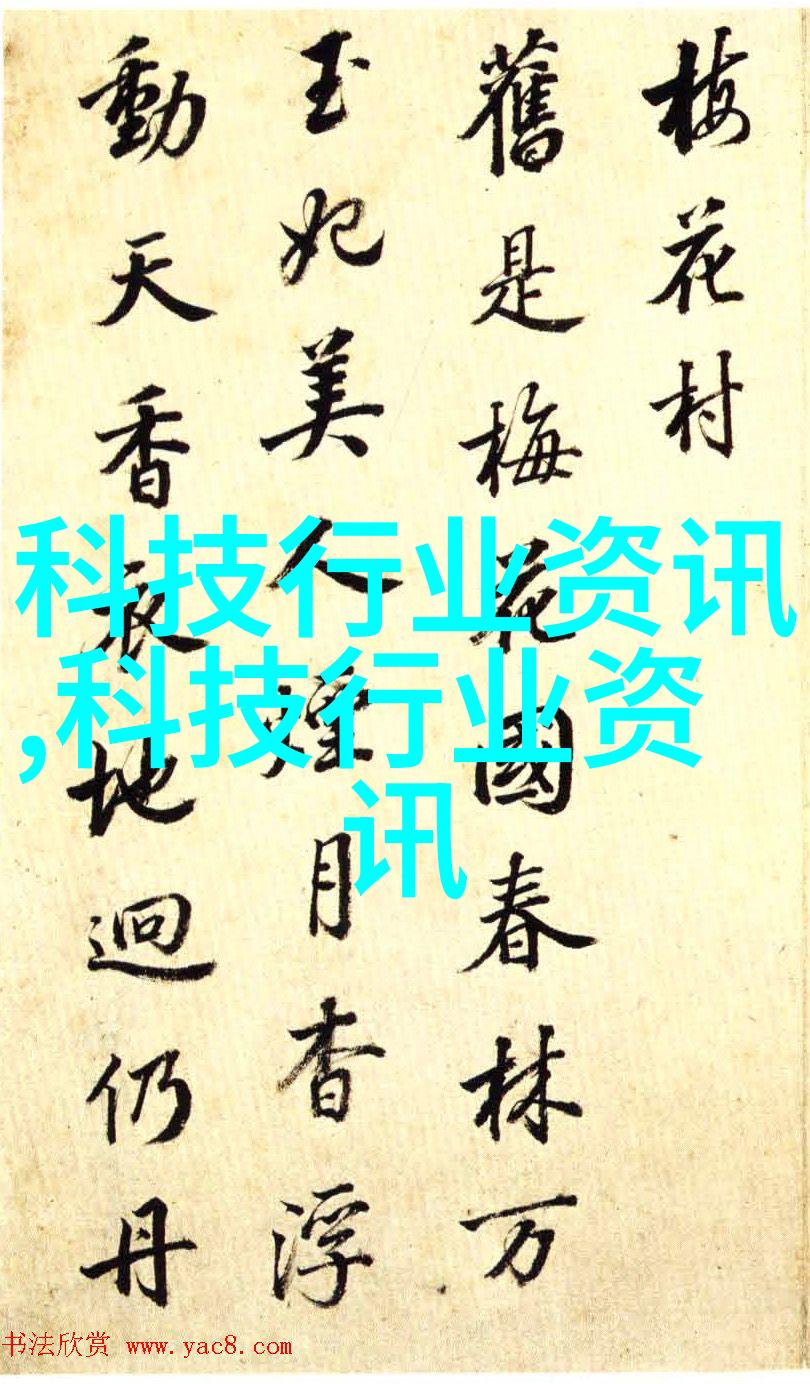 梅花村
舊是梅花國春林万
玉妃美人煙月杳浮
動天香夜地迥仍丹
科技行业资讯
,科技行业资
讯
书法欣赏 www.yac8.com